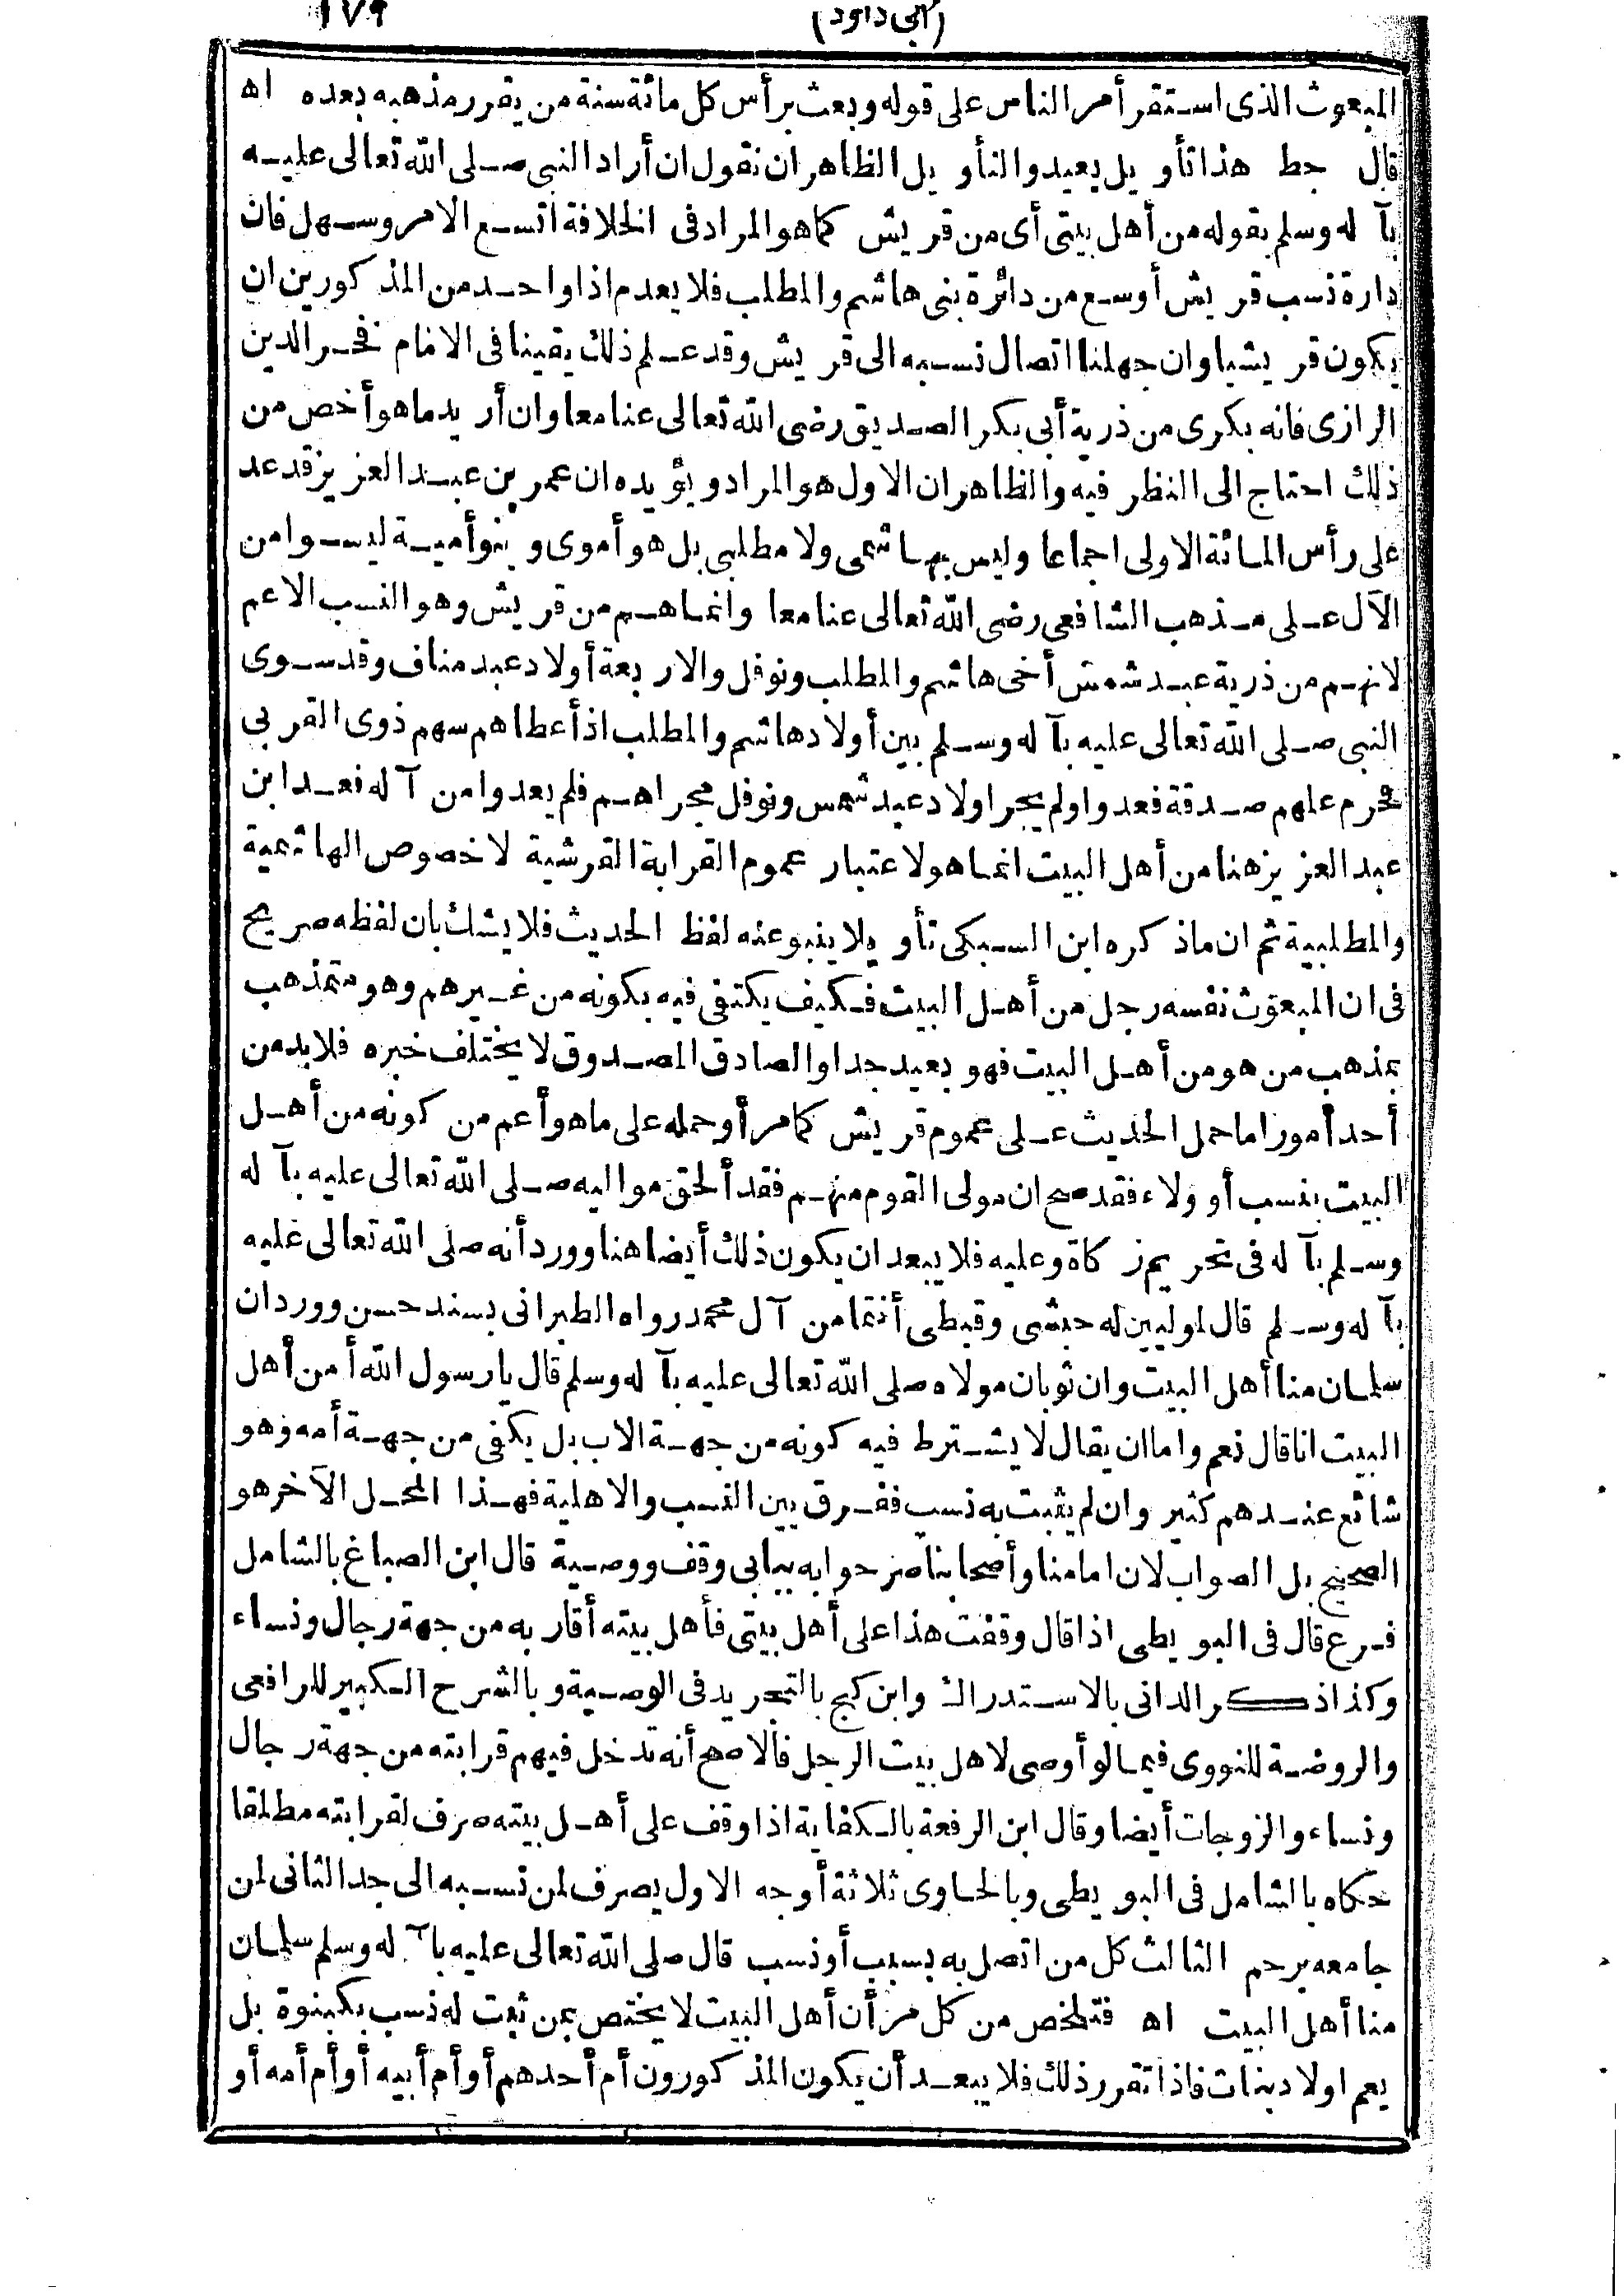 (أبى داود) ١٧٩
المبعوث الذى استقر أمر الناس على قوله وبعث برأس كل مائة سنة من يقرر مذهبه بعده اه
قال جط هذا تأويل بعيد والتأويل الظاهر ان نقول ان أراد النبى صلى الله تعالى عليه
بآ له وسلم بقوله من أهل بيتى أى من قريش كما هو المراد فى الخلافة اتسع الامر وسهل فان
دارة نسب قريش أوسع من دائرة بنى هاشم والمطلب فلا يعدم اذا واحد من المذكورين ان
يكون قرشيا وان جهلنا اتصال نسبه الى قريش وقد علم ذلك يقينا فى الامام فخر الدين
الرازى فانه بكرى من ذرية أبى بكر الصديق رضى الله تعالى عنا معا وان أريد ما هو أخص من
ذلك احتاج الى النظر فيه والظاهر ان الاول هو المراد ويؤيده ان عمر بن عبد العزيز قد عد
على رأس المائة الاولى اجماعا وليس بهاشمى ولا مطلبى بل هو أموى وبنو أمية ليسوا من
الآل على مذهب الشافعى رضى الله تعالى عنا معا وانما هم من قريش وهو النسب الاعم
لانهم من ذرية عبد شمس أخى هاشم والمطلب ونوفل والاربعة أولاد عبد مناف وقد سوى
النبى صلى الله تعالى عليه بآ له وسلم بين أولاد هاشم والمطلب اذ أعطاهم سهم ذوى القربى
فحرم عليهم صدقة فعدوا ولم يجر اولاد عبد شمس ونوفل مجراهم فلم يعدوا من آ له فعد ابن
عبد العزيز هنا من أهل البيت انما هو لاعتبار عموم القرابة القرشية لا خصوص الهاشمية
والمطلبية ثم ان ما ذكره ابن السبكى تأويلا ينبو عنه لفظ الحديث فلا يشك بان لفظه صريح
فى ان المبعوث نفسه رجل من أهل البيت فكيف يكتفى فيه بكونه من غيرهم وهو متمذهب
بمذهب من هو من أهل البيت فهو بعيد جدا والصادق المصدوق لا يختلف خبره فلا بد من
أحد أمور اما حمل الحديث على عموم قريش كما مر أو حمله على ما هو أعم من كونه من أهل
البيت بنسب أو ولاء فقد صح ان مولى القوم منهم فقد ألحق مواليه صلى الله تعالى عليه بآ له
وسلم بآ له فى تحريم زكاة وعليه فلا يبعد ان يكون ذلك أيضا هنا وورد أنه صلى الله تعالى عليه
بآ له وسلم قال لموليين له حبشى وقبطى أنتما من آل محمد رواه الطبرانى بسند حسن وورد ان
سلمان منا أهل البيت وان ثوبان مولاه صلى الله تعالى عليه بآ له وسلم قال يا رسول الله أ من أهل
البيت انا قال نعم واما ان يقال لا يشترط فيه كونه من جهة الاب بل يكفى من جهة أمه وهو
شائع عندهم كثير وان لم يثبت به نسب ففرق بين النسب والاهلية فهذا المحل الآخر هو
الصحيح بل الصواب لان امامنا وأصحابنا صرحوا به ببابى وقف ووصية قال ابن الصباغ بالشامل
فرع قال فى البويطى اذا قال وقفت هذا على أهل بيتى فأهل بيته أقاربه من جهة رجال ونساء
وكذا ذكر الدانى بالاستدراك وابن كج بالتجريد فى الوصية وبالشرح الكبير للرافعى
والروضة للنووى فيما لو أوصى لاهل بيت الرجل فالاصح أنه تدخل فيهم قرابته من جهة رجال
ونساء والزوجات أيضا وقال ابن الرفعة بالكفاية اذا وقف على أهل بيته صرف لقرابته مطلقا
حكاه بالشامل فى البويطى وبالحاوى ثلاثة أوجه الاول يصرف لمن نسبه الى جد الثانى لمن
جامعه برحم الثالث كل من اتصل به بسبب أو نسب قال صلى الله تعالى عليه بآ له وسلم سلمان
منا أهل البيت اه فتلخص من كل مر أن أهل البيت لا يختص بمن ثبت له نسب بكبنوة بل
يعم اولاد بنات فاذا تقرر ذلك فلا يبعد أن يكون المذكورون أم أحدهم أو أم أبيه أو أم أمه أو